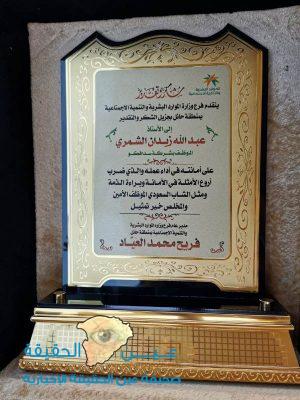 شكر وتقدير
الموارد البشرية
والتنمية الاجتماعية
يتقدم فرع وزارة الموارد البشرية والتنمية الاجتماعية
بمنطقة حائل بجزيل الشكر والتقدير
إلى الأستاذ
عبدالله زيدان الشمري
الموظف بشركة بدالكو
على أمانته في أداء عمله والذي ضرب
أروع الأمثلة في الأمانة وبراءة الذمة
ومثل الشاب السعودي الموظف الأمين
والمخلص خير تمثيل
مدير عام فرع وزارة الموارد البشرية
والتنمية الاجتماعية بمنطقة حائل
فريح محمد العياد
عين الحقيقة
صحيفة عين الحقيقة الإخبارية